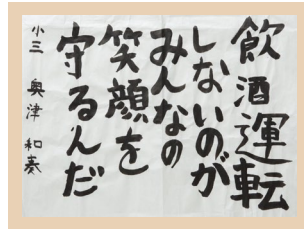 飲酒運転
しないのが
みんなの
笑顔を
守るんだ
小三 奥津 和奏